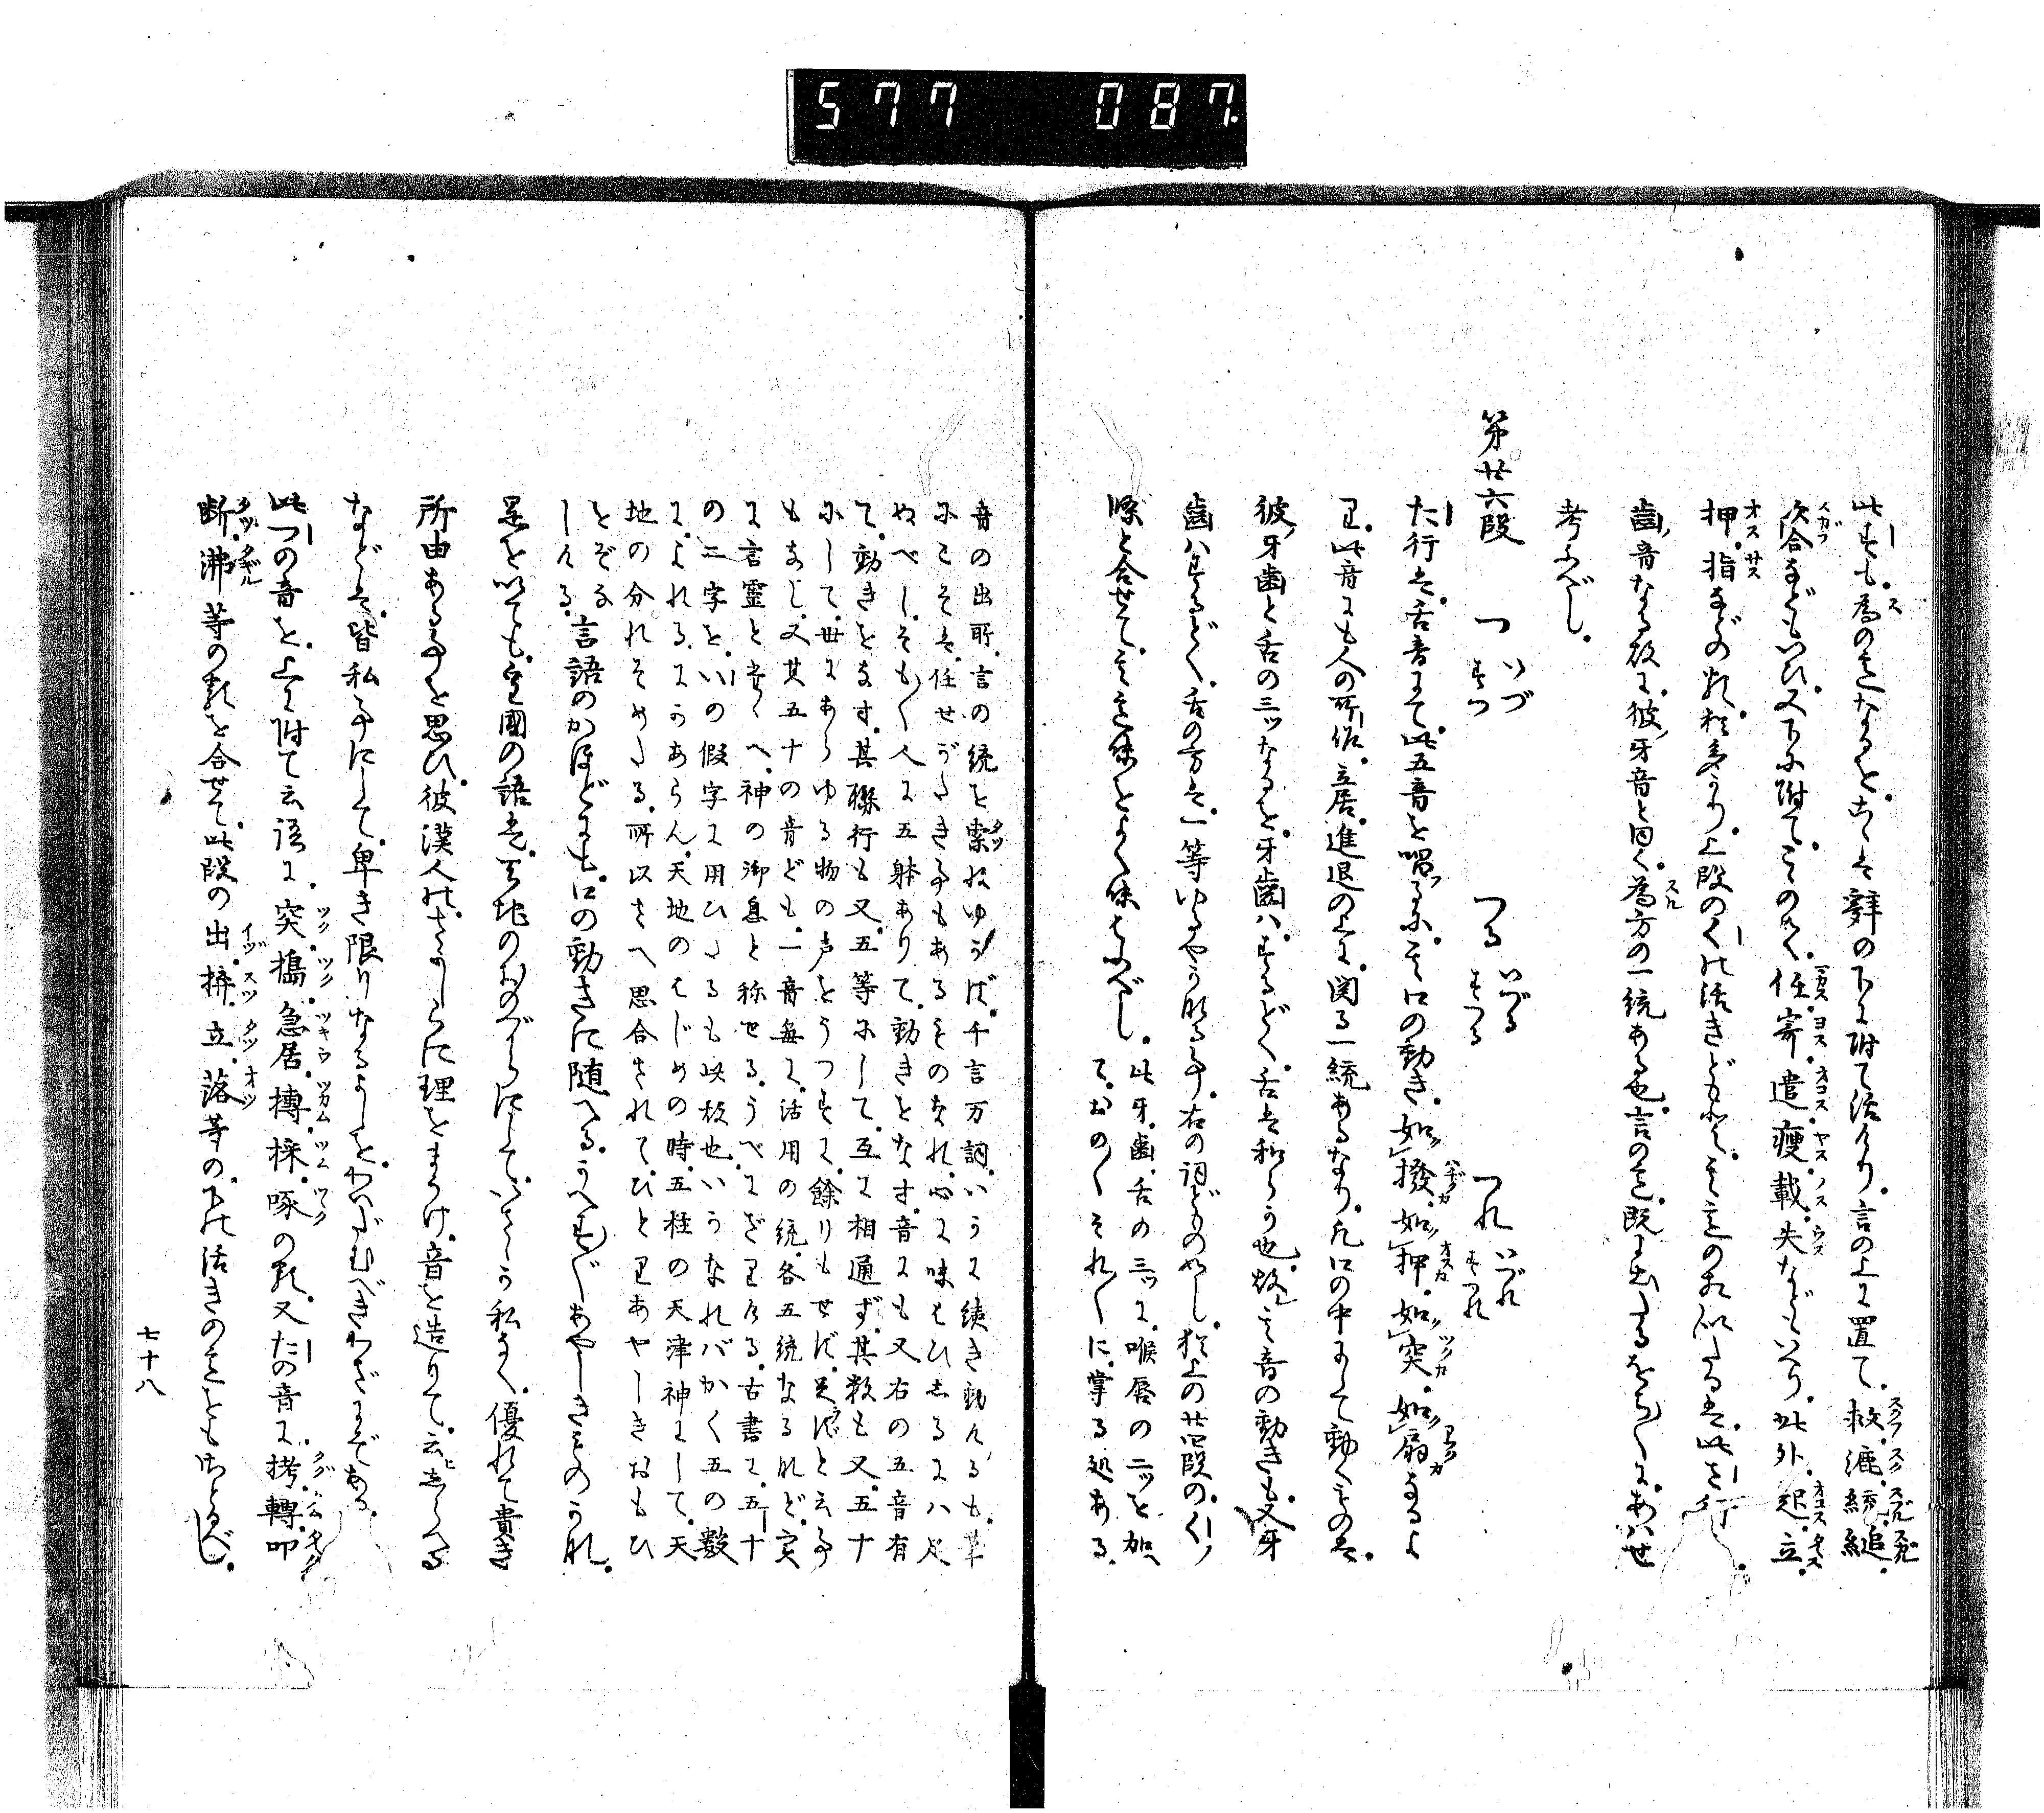 577 087
此すも。為の意なるを。こゝは辭の下に附て活けり。言の上に置て。救。漉。統。縋。
次合などもいひ。又下に附て。このすく。任。寄。遣。瘦。載。失などもいへり。此外。起。立。
押。指などの類。猶多かり。上段のくの活きどもと。其意の相似たるは。此さ行
齒音なる故に。彼牙音と同く。為方の一統ある也。言の意。既に出たるをも〳〵に。あはせ
考ふべし。
第廿六段 つ いづ すつ つる いづる すつる つれ いづれ すつれ
た行は。舌音にて。此五音を唱るに。其口の動き。如撥。如押。如突。如扇なるよ
り。此音にも人の所作。立居。進退の上に。関る一統あるなり。凡口の中にて動くものは。
彼牙齒と舌の三ッなるを。牙齒ハ。するどく。舌は和らか也。故其音の動きも。又牙
齒ハするどく。舌の方は。一等ゆるやかなる事。右の詞どものめし。猶上の廿四段の。く
條と合せて。其意味をよく味はふべし。此牙。齒。舌の三ッに。喉唇の二ッを加へ
て。おの〳〵それ〳〵に。掌る処ある。
音の出所。言の統を索ねゆかば。千言万詞。いかに續き動けるも。
にこそは。任せがたき事もあるものなれ。心に味はひしるにハ及
ぬべし。そも〳〵人に五躰ありて。動きをなす。音にも又右の五音有
て。動きをなす。其聯行も又。五等にして。互に相通ず。其数も又。五十
にして。世にあらゆる物の声をうつすに。餘りもせず。足ずと云事
もなし。又其五十の音ども。一音毎に。活用の統。各五統なるなど。実
に言靈と幸へ。神の御息と称せる。うべにざりける。古書に五十
の二字を。いの假字に用ひたるも此故也。いかなれバかく五の数
による。にかあらん。天地のはじめの時。五柱の天津神にして。天
地の分れそめたる。所以さへ思合されて。ひとりあやしきおもひ
をぞなしける。言語のかほどにも。口の動きに随へる。うへ〳〵あやしきものかれ。
是を以ても。皇國の語は。天地のおのづからにして。いさゝか私なく。優れて貴き
所由ある事を思ひ。彼漢人の。さかしらに理をまうけ。音を造りて。云しらへる
などは。皆私事にして。卑き限りなるよしを。わいだむべきわざにぞある。
此つの音を。上に附て云語に。突。搗。急居。摶。採。啄の類。又たの音に。拷。轉。叩
断。沸等の類を合せて。此段の出。捨。立。落等の。下の活きの意をもさとるべし。
七十八